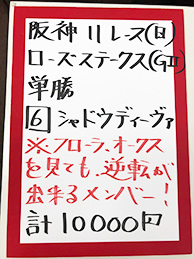 阪神11レース(日)
ローズステークス(GII)
単勝
6 シャドウディーヴァ
※フローラ、オークス
を見ても、逆転が
出来るメンバー!
計10000円